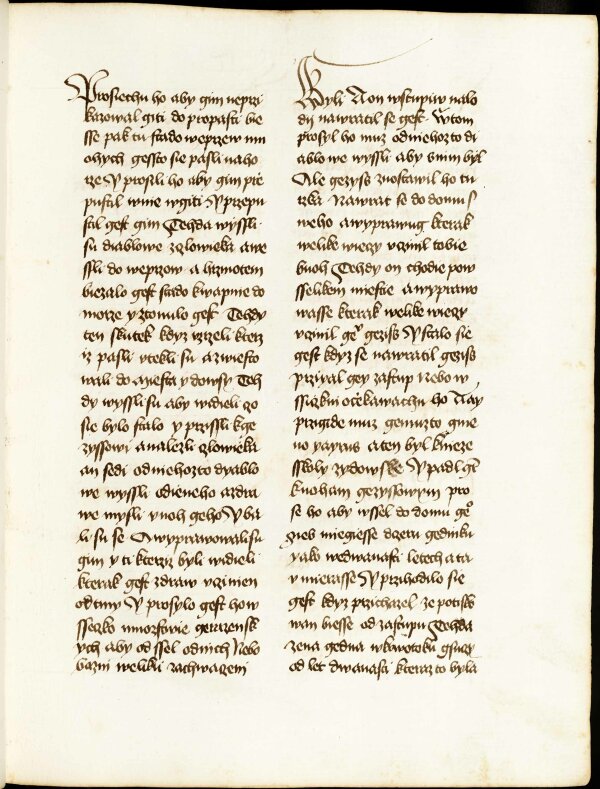 Prosiechu ho aby gim neprzi
kazowal giti do propasti bie
sse pak tu stado weprzew mn
ohych gessto sie pasli naho
rze Y prosili ho aby gim prze
pustil wnie wgiti Y przepu
stil gest gim Tehda wyssli
su diablowe zczlowieka awe
ssli do weprzow a hrzmotem
biezalo gest stado kwapnie do
morze y ztonulo gest Tehdy
ten skutek kdyz uzrzeli kterz
iz pasli utekli su azwiesto
wali do miesta y dowsy Teh
dy wyssli su aby widieli czo
sie bylo stalo y przissli kge
zyssowi analezli czlowieka
an sedi odniehozto dyablo
we wyssli odieneho azdra
we mysli unoh geho Y ba
li su se Awyprawowali su
gim y ti kterziz byli widieli
kterak gest zdraw uczinen
odtiny Y prosylo gest how
sseczko mnozstwie gerazensk
ych aby od ssel odnich Nebo
bazni weliku zachwaczeni
byli A on wstupiw nalo
dij nawratil se gest Wtom
prosyl ho muz odniehozto di
ablowe wyssli aby snim byl
Ale gezyss zuostawil ho tu
rzka Nawrat se do domu s
weho awyprawug kterak
welike wieczy uczinil tobie
buoh Tehdy on chodie pow
sselikem miestie awyprawo
wasse kterak welike wieczy
uczinil ge geziss Ystalo sie
gest kdyz se nawratil geziss
przigal gey zastup Nebo w
ssiczkni oczekawachu ho Aay
przigide muz gemuzto gme
no yayrus aten byl knieze
sskoly zydowske Ypadl gest
knoham gezyssowym pro
se ho aby wssel do domu geho
nieb miegiesse dczeru gedinku
yako wedwanasti letech ata
umierasse Y przihodilo sie
gest kdyz przichazel ze potisko
wan biesse od zastupu Tehda
zena gedna wkrwotoku gsuczy
od let dwanasti kterazto byla